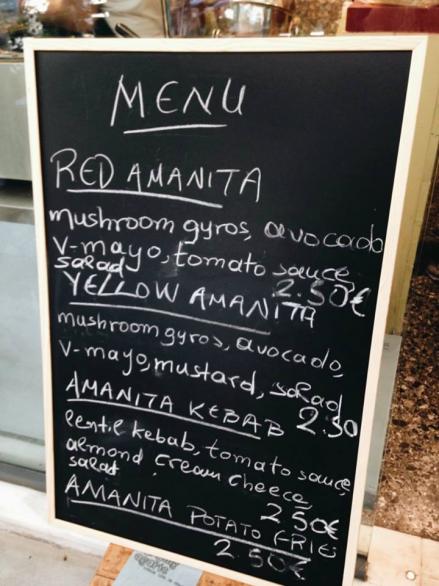 MENU
RED AMANITA
mushroom gyros, avocado
v-mayo, tomato sauce
salad 2.50€
YELLOW AMANITA
mushroom gyros, avocado,
v-mayo, mustard, salad
2.50
AMANITA KEBAB
lentil kebab, tomato sauce,
almond cream cheece
salad 2.50€
AMANITA POTATO FRIES
2.50€